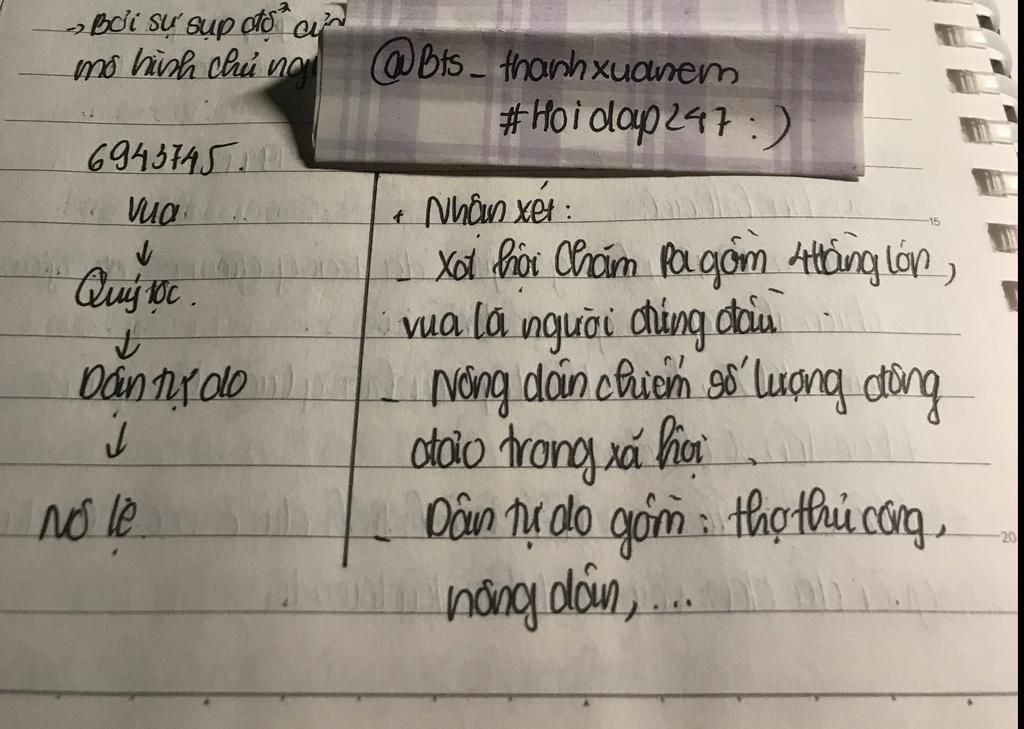 → Bởi sự sụp đổ của
mô hình chủ ng
@Bts_thanhxuanem
#Hoidap247 :)
6943745.
vua
↓
Quý tộc.
↓
Dân tự do
↓
Nô lệ
+ Nhận xét:
- Xã hội Chăm Pa gồm 4 tầng lớn,
vua là người đứng đầu
- Nông dân chiếm số lượng đông
đảo trong xã hội.
- Dân tự do gồm: thợ thủ công,
nông dân,...
15
20